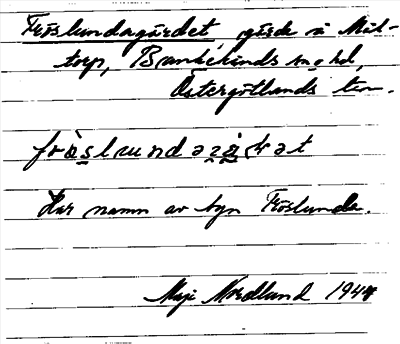 Fröslundagärdet, gärde i Mål-
torp, Bankekinds sn o hd,
Östergötlands län.
Har namn av byn Fröslunda.
Maji Nordlund 1947